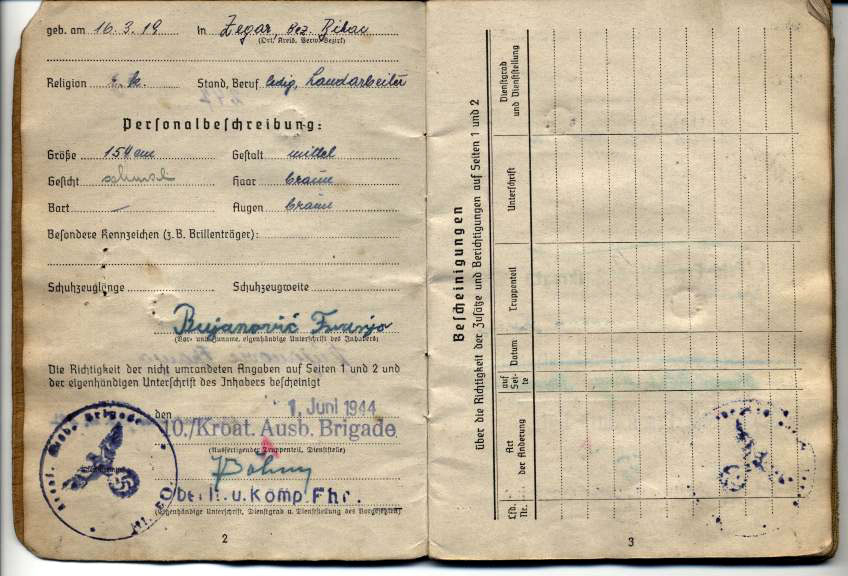 geb. am 16.3.19 in Zegar, Bez. Bihac
(Ort, Kreis, Verw.-Bezirk)
Religion r. k. Stand, Beruf ledig, Landarbeiter
Personalbeschreibung:
Größe 154 cm Gestalt mittel
Gesicht schmal Haar braun
Bart — Augen braun
Besondere Kennzeichen (z. B. Brillenträger):
Schuhzeuglänge Schuhzeugweite
Bujanović Franjo
(Vor- und Zuname, eigenhändige Unterschrift des Inhabers)
Die Richtigkeit der nicht umrandeten Angaben auf Seiten 1 und 2 und
der eigenhändigen Unterschrift des Inhabers bescheinigt
den 1. Juni 1944
10./Kroat. Ausb. Brigade
(Ausfertigender Truppenteil, Dienststelle)
Böhm
Oberlt. u. Komp. Fhr.
(Eigenhändige Unterschrift, Dienstgrad u. Dienststellung des Vorgesetzten)
Kroat. Ausb. Brigade
2
Bescheinigungen
über die Richtigkeit der Zusätze und Berichtigungen auf Seiten 1 und 2
Lfd. Nr.
Art der Änderung
auf Sei-te
Datum
Truppenteil
Unterschrift
Dienstgrad und Dienststellung
3